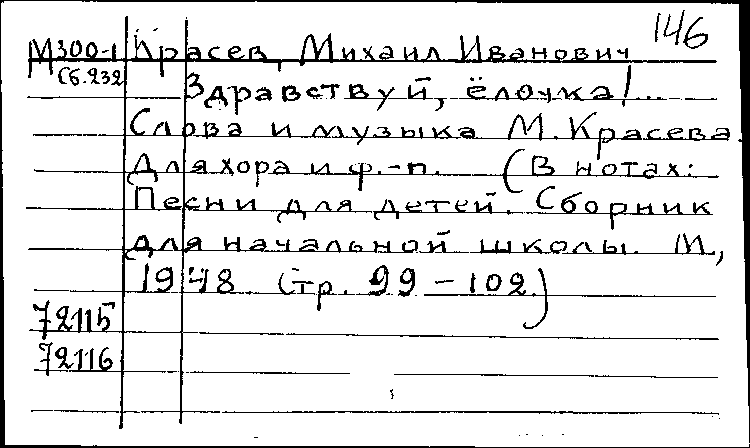 146
М300-1 Красев, Михаил Иванович
Сб.232 Здравствуй, ёлочка!...
Слова и музыка М. Красева.
Для хора и ф.-п. (В нотах:
Песни для детей. Сборник
для начальной школы. М,
1948 стр. 99-102)
72115
72116